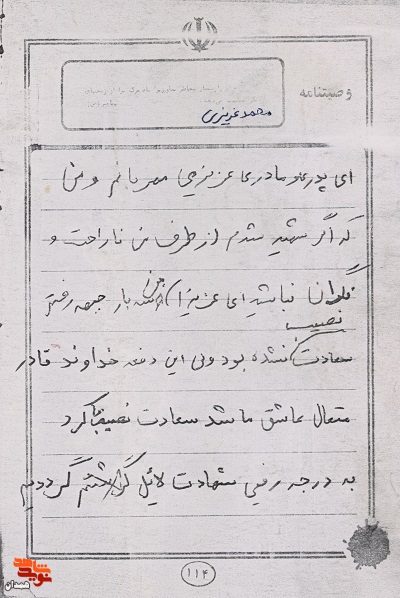 وصیتنامه
محمد عزیزی
ای پدر و مادر عزیز من مهربانم و من
که اگر شهید شدم از طرف من ناراحت و
نگران نباشید ای عزیزان من بار جبهه رفتم
نصیب
سعادت نشده بود ولی این دفعه خداوند قادر
متعال عاشق ما شد سعادت نصیب ما کرد
به درجه رفیع شهادت نائل گردیم
۱۱۴
نوید شاهد
همدان